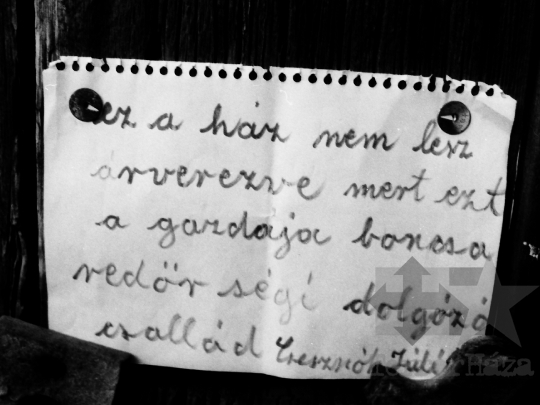 ez a ház nem lesz
árverezve mert ezt
a gazdája boncsa
redőr ségí dolgózó
csallád Cseresznók Júli
Háza